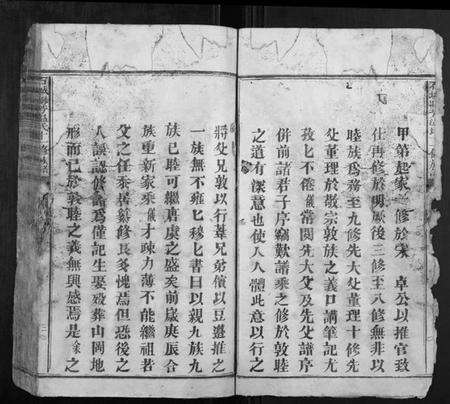 甲第起家一修於宋 卓公以推官致
仕再修於明厥後三修至八修無非以
睦族爲務至九修先大父董理十修先
父董理於敬宗敦族之義口講筆記尤
孜七不倦儀嘗閱先大父及先父譜序
併前諸君子序竊歎諸乘之修於敦睦
之道有深意也使人人體此意以行之
將父兄敦以行葦兄弟儐以豆籩推之
一族無不雍七穆七書曰以親九族九
族已睦可繼唐虞之盛矣前歲庚辰合
族重新家乘儀才疎力薄不能繼祖若
父之任忝居纂修良多愧焉但恐後之
人誤認於譜爲僅記生娶歿葬山岡地
形而已於敦睦之義無興感焉是余之